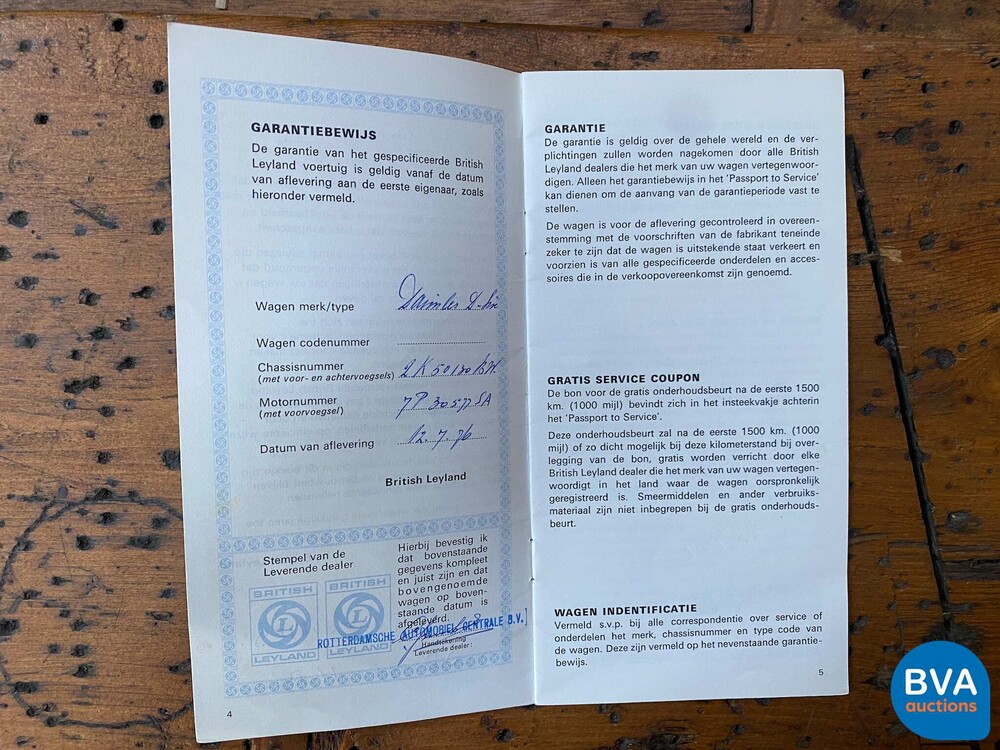 GARANTIEBEWIJS
De garantie van het gespecificeerde British
Leyland voertuig is geldig vanaf de datum
van aflevering aan de eerste eigenaar, zoals
hieronder vermeld.
Wagen merk/type Daimler
Wagen codenummer
Chassisnummer
(met voor- en achtervoegsels) 2K50120BW
Motornummer 7P30577SA
(met voorvoegsel)
Datum van aflevering 12.7.76
British Leyland
Stempel van de
Leverende dealer
BRITISH
L
LEYLAND
BRITISH
L
LEYLAND
Hierbij bevestig ik
dat bovenstaande
gegevens kompleet
en juist zijn en dat
bovengenoemde
wagen op boven-
staande datum is
afgeleverd.
ROTTERDAMSCHE AUTOMOBIEL CENTRALE B.V.
Handtekening
Leverende dealer:
4
GARANTIE
De garantie is geldig over de gehele wereld en de ver-
plichtingen zullen worden nagekomen door alle British
Leyland dealers die het merk van uw wagen vertegenwoor-
digen. Alleen het garantiebewijs in het 'Passport to Service'
kan dienen om de aanvang van de garantieperiode vast te
stellen.
De wagen is voor de aflevering gecontroleerd in overeen-
stemming met de voorschriften van de fabrikant teneinde
zeker te zijn dat de wagen is uitstekende staat verkeert en
voorzien is van alle gespecificeerde onderdelen en acces-
soires die in de verkoopovereenkomst zijn genoemd.
GRATIS SERVICE COUPON
De bon voor de gratis onderhoudsbeurt na de eerste 1500
km. (1000 mijl) bevindt zich in het insteekvakje achterin
het 'Passport to Service'.
Deze onderhoudsbeurt zal na de eerste 1500 km. (1000
mijl) of zo dicht mogelijk bij deze kilometerstand bij over-
legging van de bon, gratis worden verricht door elke
British Leyland dealer die het merk van uw wagen vertegen-
woordigt in het land waar de wagen oorspronkelijk
geregistreerd is. Smeermiddelen en ander verbruiks-
materiaal zijn niet inbegrepen bij de gratis onderhouds-
beurt.
WAGEN INDENTIFICATIE
Vermeld s.v.p. bij alle correspondentie over service of
onderdelen het merk, chassisnummer en type code van
de wagen. Deze zijn vermeld op het nevenstaande garantie-
bewijs.
5
BVA
auctions